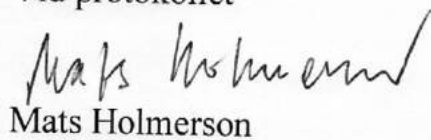 Vid protokollet
Mats Holmerson
Mats Holmerson